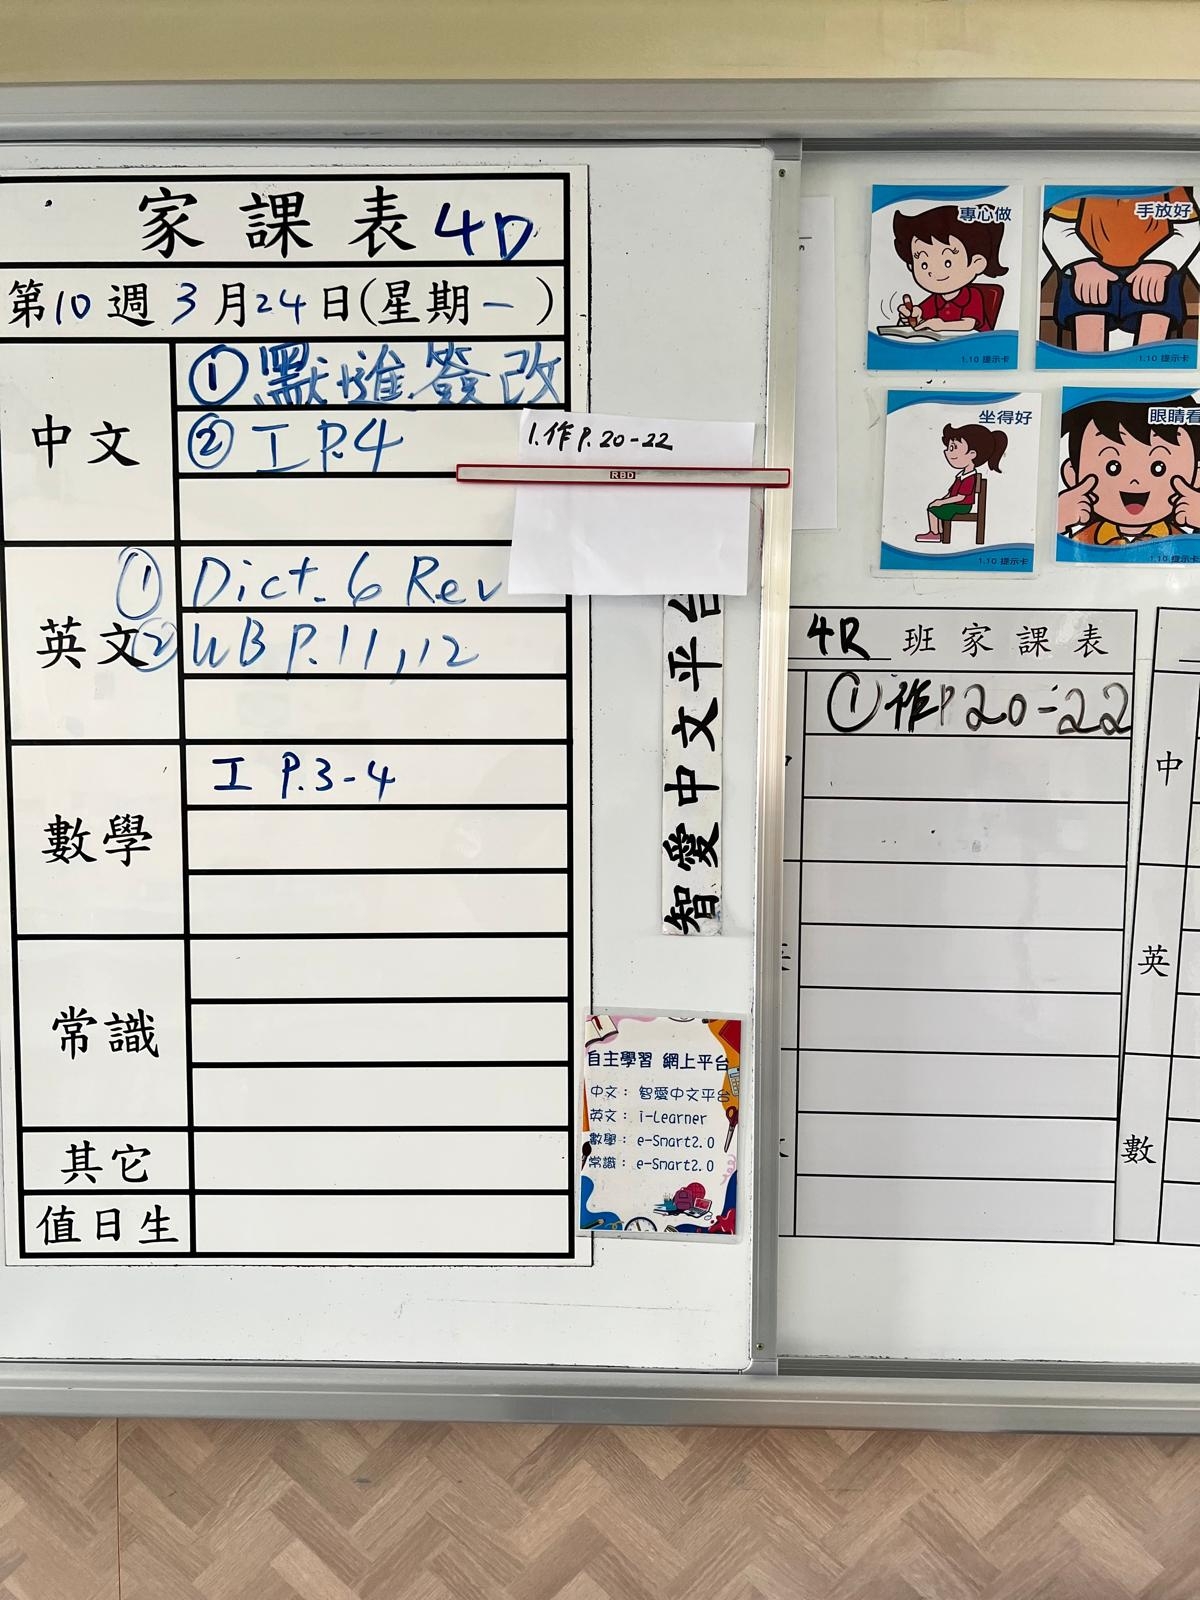 家課表 4D
第10週 3月24日(星期一)
中文
①默進簽改
②工 P.4
1.作P.20-22
RBD
英文
① Dict. 6 Rev
② WB P.11,12
數學
工 P.3-4
常識
其它
值日生
智愛中文平台
自主學習 網上平台
中文： 智愛中文平台
英文： i-Learner
數學： e-Smart2.0
常識： e-Smart2.0
專心做
1.10 提示卡
手放好
1.10 提示卡
坐得好
1.10 提示卡
眼睛看
1.10 提示卡
4R 班家課表
①作P20-22
中
英
數